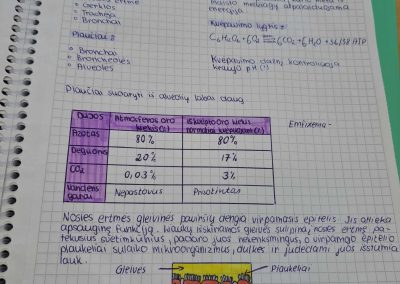 Gerklos
Trachėja
Bronchai
medžiagų atpalaiduojama
energija
Kvėpavimo lygtis =
Plaučiai:
C₆H₁₂O₆ + 6O₂ 6CO₂ + 6H₂O + 36/38 ATP
Bronchai
Bronchiolės
Alveolės
Kvėpavimo dažnį kontroliuoja
kraujo pH (!)
Plaučiai sudaryti iš alveolių labai daug
Dujos Atmosferos oro kiekis (%) Iškvėpto oro kiekis normaliai kvėpuojant (%)
Emfizema -
Azotas 80% 80%
Deguonis 20% 17%
CO₂ 0,03% 3%
Vandens garai Nepastovus Prisotintas
Nosies ertmės gleivinės paviršių dengia virpamasis epitelis. Jis atlieka
apsauginę funkciją. Liaukų išskiriamos gleivės sulipina į nosies ertmę pa-
tekusius svetimkūnius, padaro juos nekenksmingus, o virpamojo epitelio
plaukeliai sulaiko mikroorganizmus, dulkes ir judėdami juos išstumia
lauk.
Gleivės Plaukeliai